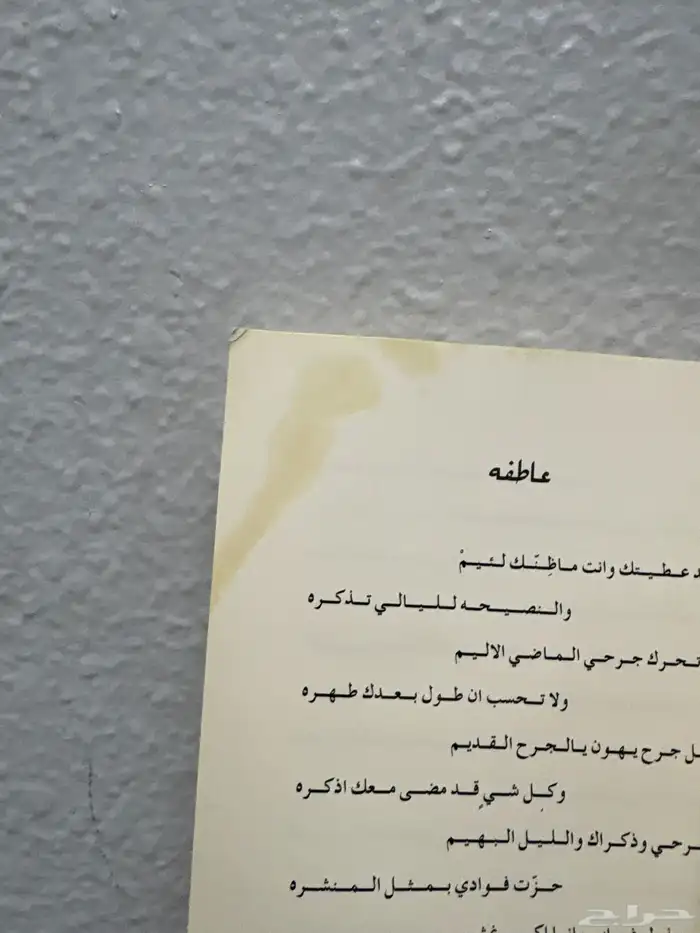 عاطفه
عطيتك وانت ماظِنّك لئيمْ
والنصيحه لليالي تذكره
تحرك جرحي الماضي الاليم
ولا تحسب ان طول بعدك طهره
جرح يهون يالجرح القديم
وكِل شيٍ قد مضى معك اذكره
وذكراك والليل البهيم
حزّت فوادي بمثل المنشره
حراج